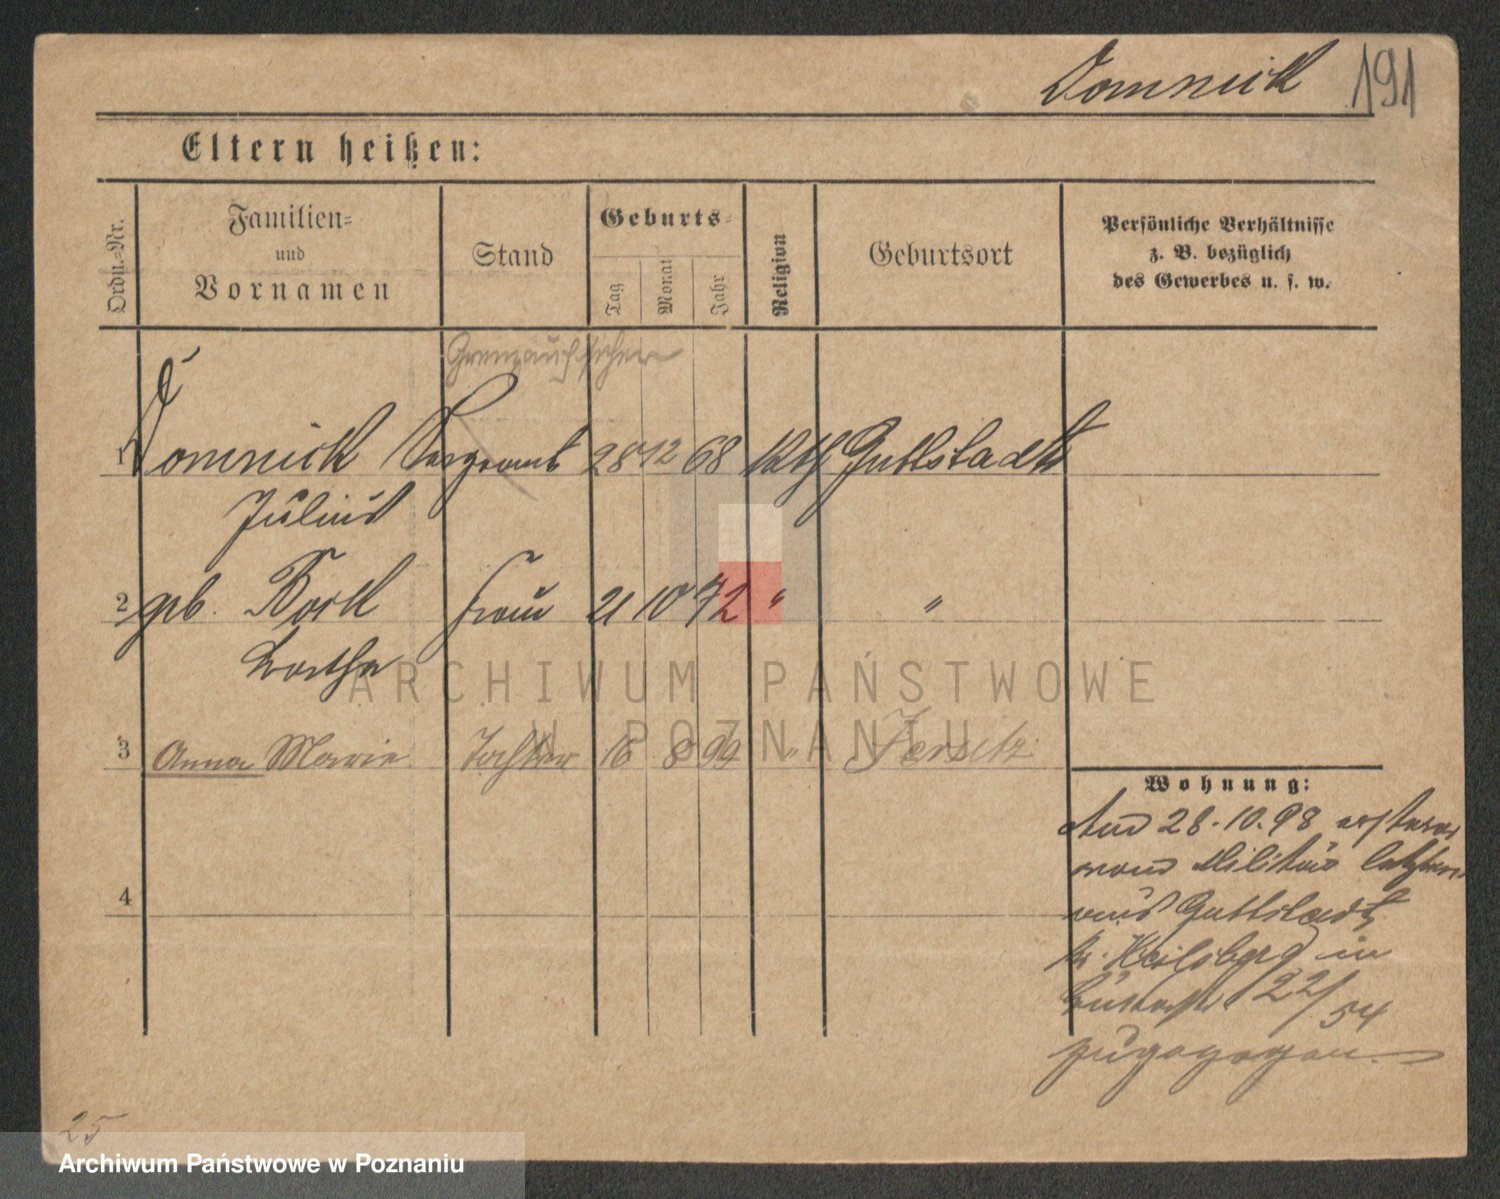 Domnick 191
Eltern heißen:
Ordn.-Nr.
Familien-
und
Vornamen
Stand
Geburts-
Tag
Monat
Jahr
Religion
Geburtsort
Persönliche Verhältnisse
z. B. bezüglich
des Gewerbes u. s. w.
Grenzaufseher
1 Domnick Sergeant 28 12 68 kth Guttstadt
Julius
2 geb. Bork Frau 21 10 72 " "
Bertha
3 Anna Marie Tochter 16 8 99 " Jersitz
4
Wohnung:
Am 28.10.98 ersterer
vom Militär letztere
aus Guttstadt
Kr. Heilsberg in
22/54
zugezogen.
25
ARCHIWUM PAŃSTWOWE
W POZNANIU
Archiwum Państwowe w Poznaniu